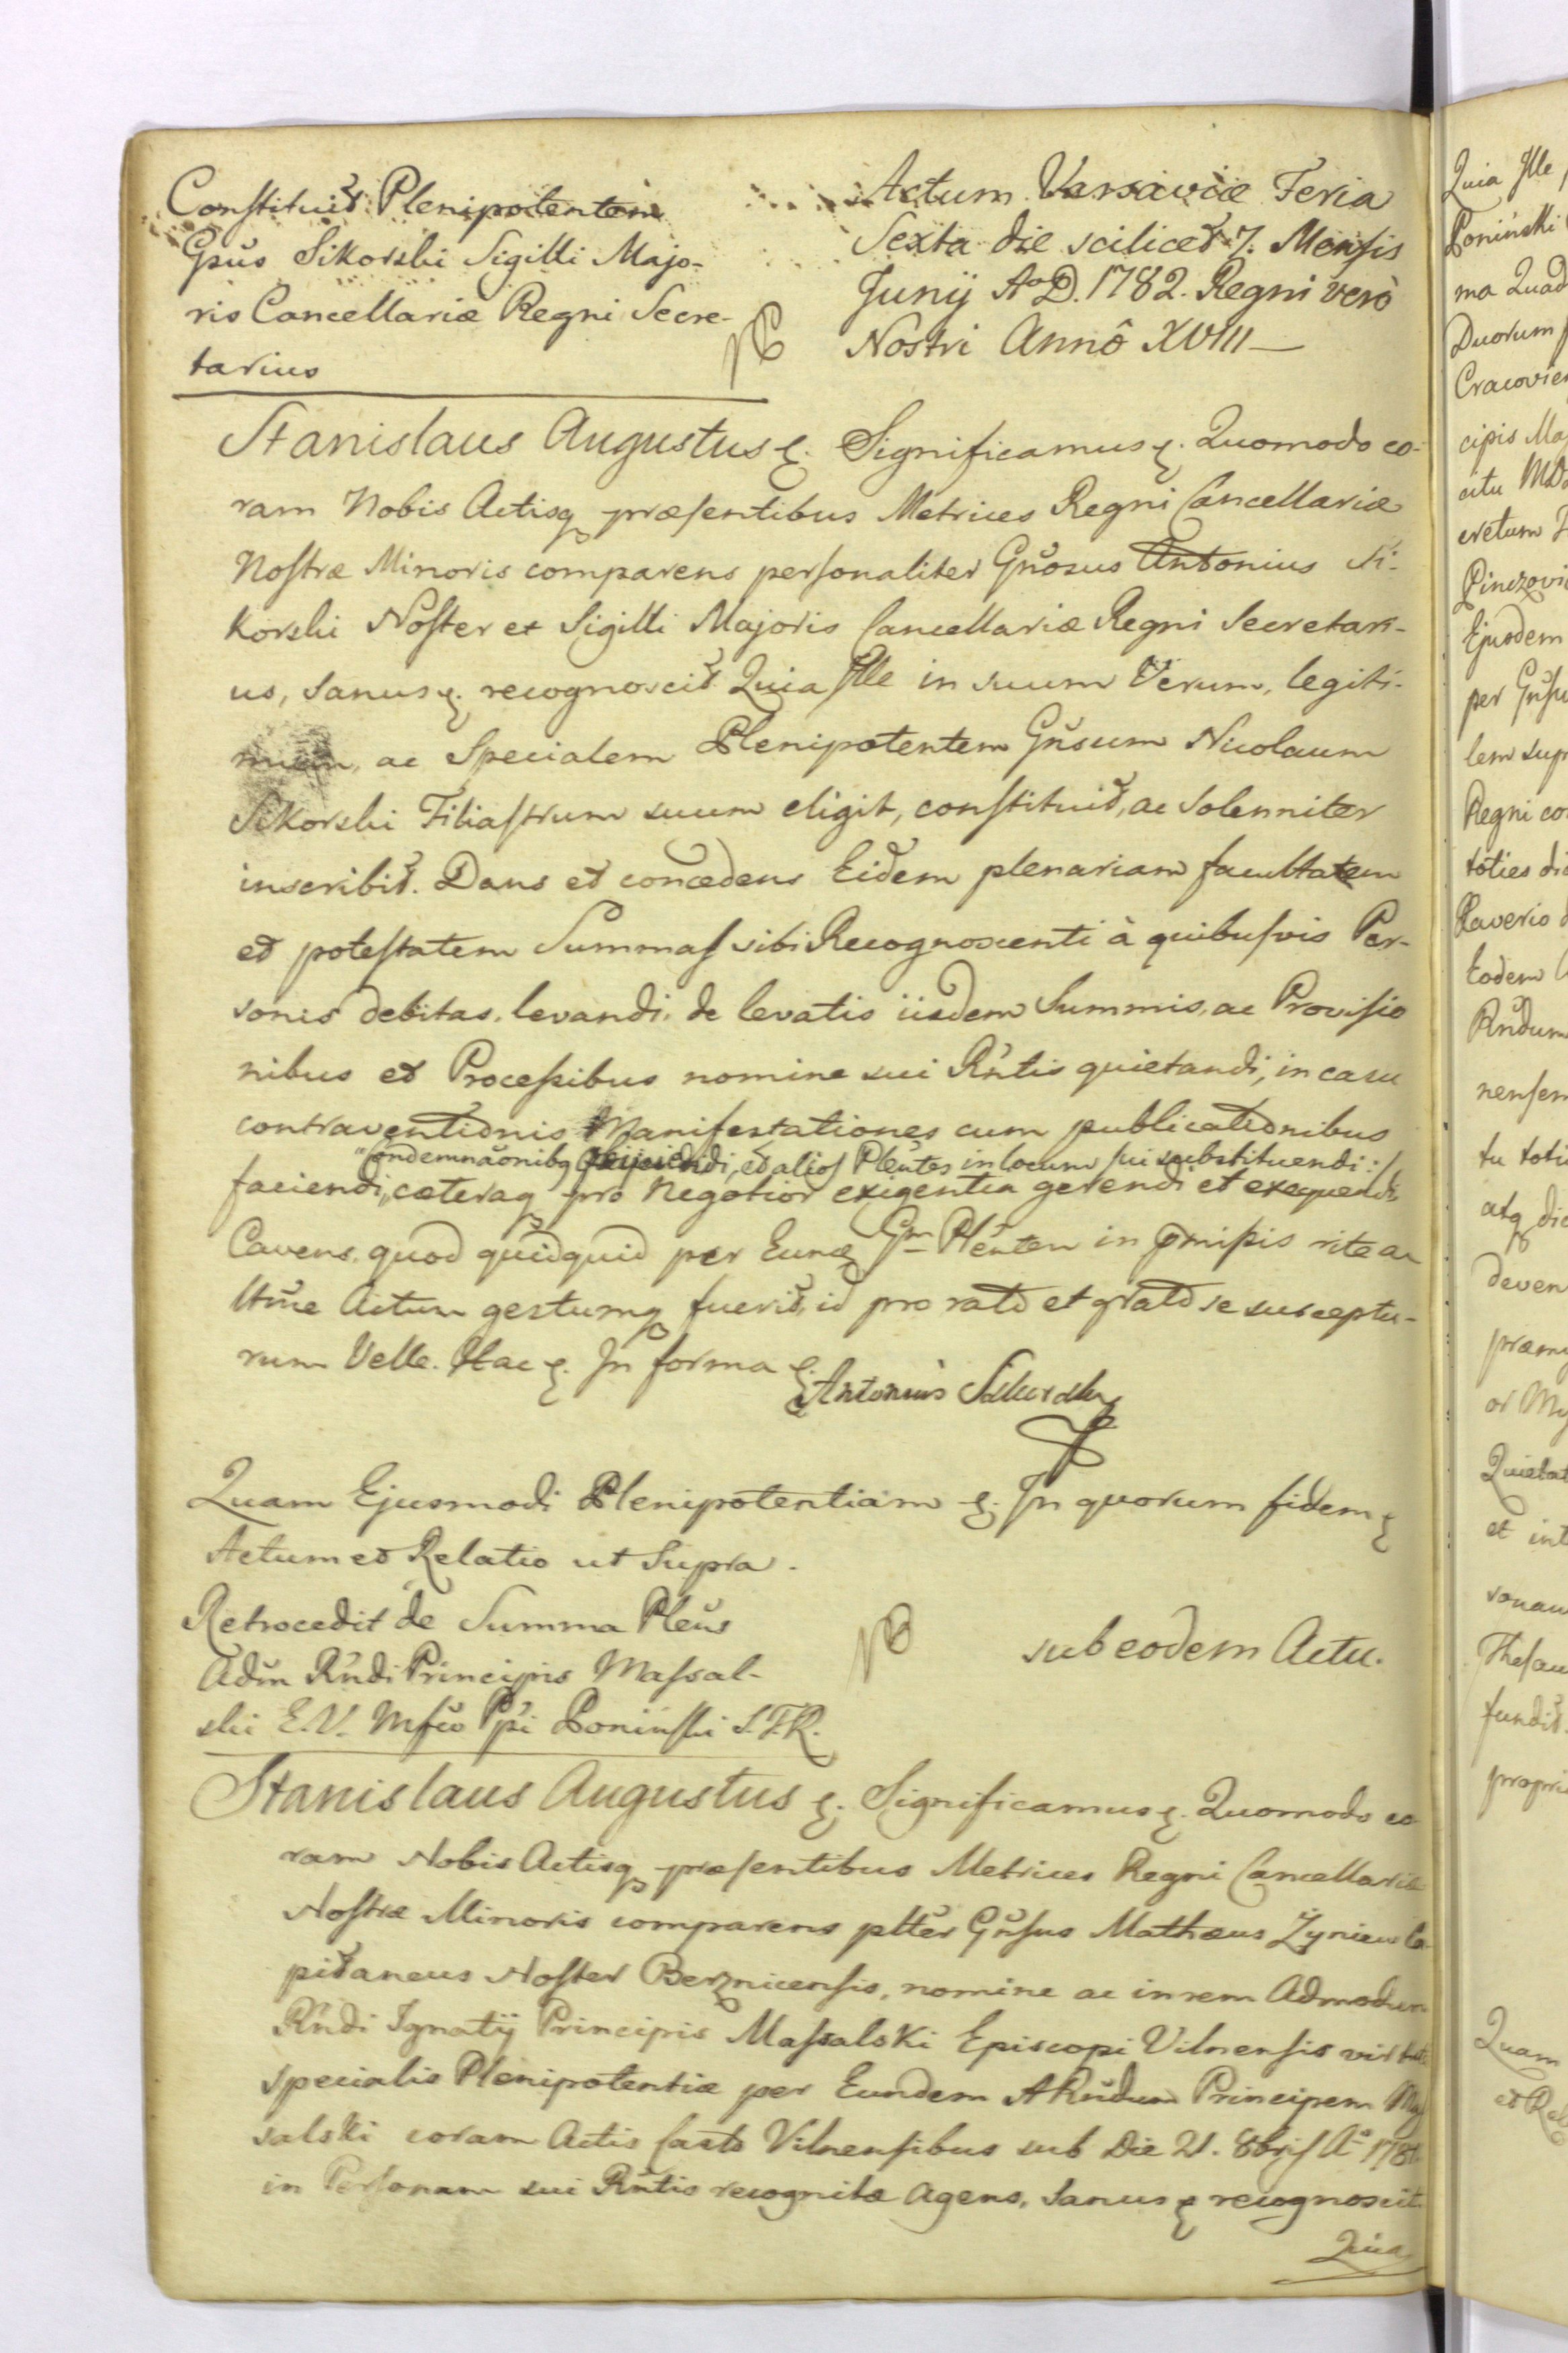 Constituit Plenipotentem
Gsus Sikorski Sigilli Majo-
ris Cancellariæ Regni Secre-
tarius
Actum Varsaviæ Feria
Sexta die scilicet 7. Mensis
Junij Ao D. 1782. Regni verò
Nostri Annô XVIII
Stanislaus Augustus &. Significamus &. Quomodo co-
ram Nobis Actisq præsentibus Metrices Regni Cancellariæ
Nostræ Minoris comparens personaliter Gnosus Antonius Si-
korski Noster et Sigilli Majoris Cancellariæ Regni Secretari-
us, sanus &. recognoscit Quia Ille in suum Verum, legiti-
mum, ac Specialem Plenipotentem Gnsum Nicolaum
Sikorski Filiastrum suum eligit, constituit, ac solenniter
inscribit. Dans et concedens Eidem plenariam facultatem
et potestatem Summas sibi Recognoscenti à quibusvis Per-
sonis debitas, levandi, de levatis iisdem Summis, ac Provisio
nibus et Processibus nomine sui Rntis quietandi, in casu
contraventionis Manifestationes cum publicationibus
condemnãonibq, et alios Plentes in locum sui substituendi :/
faciendi, cæteraq pro Negotior exigentia gerendi et exequendi
Cavens, quod quidquid per Eunq Gm Plenten in pmissis rite ac
ltme Actum gestumq fuerit, id pro rato et grato se susceptu-
rum Velle. Hac &. In forma &.
Antonius Sikorski
Quam Ejusmodi Plenipotentiam &. In quorum fidem &
Actum et Relatio ut Supra.
Retrocedit de Summa Plens
Adm Rndi Principis Massal-
ski E.V. Mfco Ppi Poninski S.T.R.
sub eodem Actu.
Stanislaus Augustus &. Significamus &. Quomodo co
ram Nobis Actisq præsentibus Metrices Regni Cancellariæ
Nostræ Minoris comparens pltter Gnsus Mathæus Zyniew Ca-
pitaneus Noster Berznicensis, nomine ac in rem Admodum
Rndi Ignatij Principis Massalski Episcopi Vilnensis virtute
specialis Plenipotentiæ per Eundem ARndum Principem Mas
salski coram Actis Casts Vilnensibus sub Die 21. 8bris Ao 1781.
in Personam sui Rntis recognitæ agens, sanus & recognoscit
Quia
Quia Ille
Poninski
ma Quad
Duorum
Cracovien
cipis Ma
cretum
Pinczovi
Ejusdem
per Gnsu
lem sup
Regni co
toties di
Xaverio
Eodem
Rndum
nensem
tu toti
atq dic
deven
Quietat
et int
sonam
Thesau
fundit
propri
Quam
et Rel